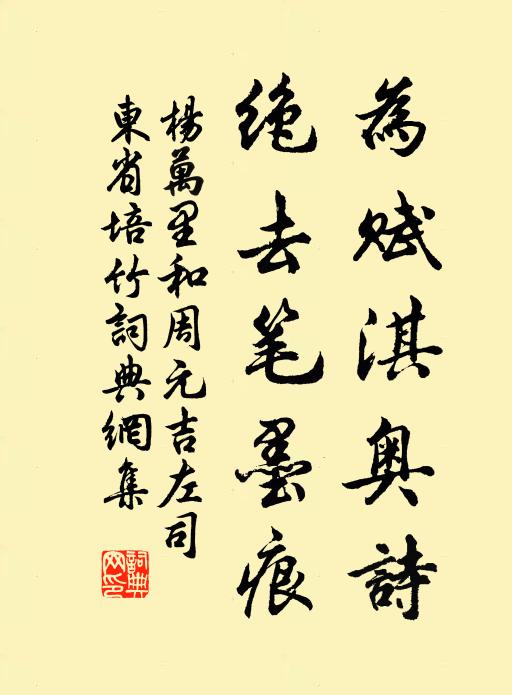 為赋淇奥詩
绝去笔墨痕
楊萬里和周元吉左司
東省培竹詞典網集
詞典
网印